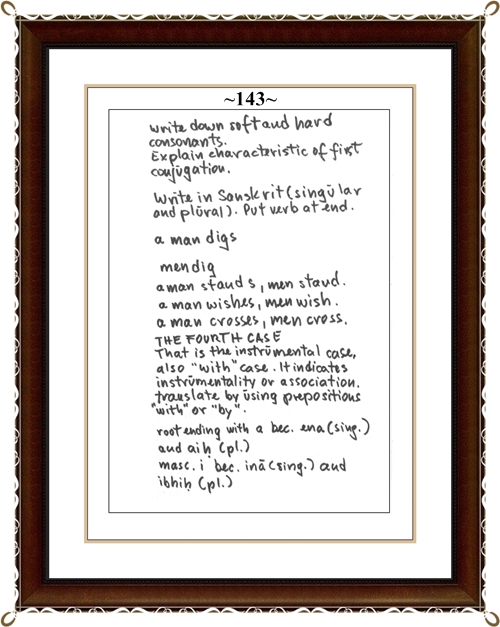 ~143~
write down soft and hard
consonants.
Explain characteristic of first
conjugation.
Write in Sanskrit (singūlar
and plūral). Put verb at end.
a man digs
men dig
a man stands, men stand.
a man wishes, men wish.
a man crosses, men cross.
THE FOURTH CASE
That is the instrūmental case,
also "with" case. It indicates
instrūmentality or association.
translate by ūsing prepositions
"with" or "by".
root ending with a bec. ena (sing.)
and aiḥ (pl.)
masc. i bec. inā (sing.) and
ibhiḥ (pl.)